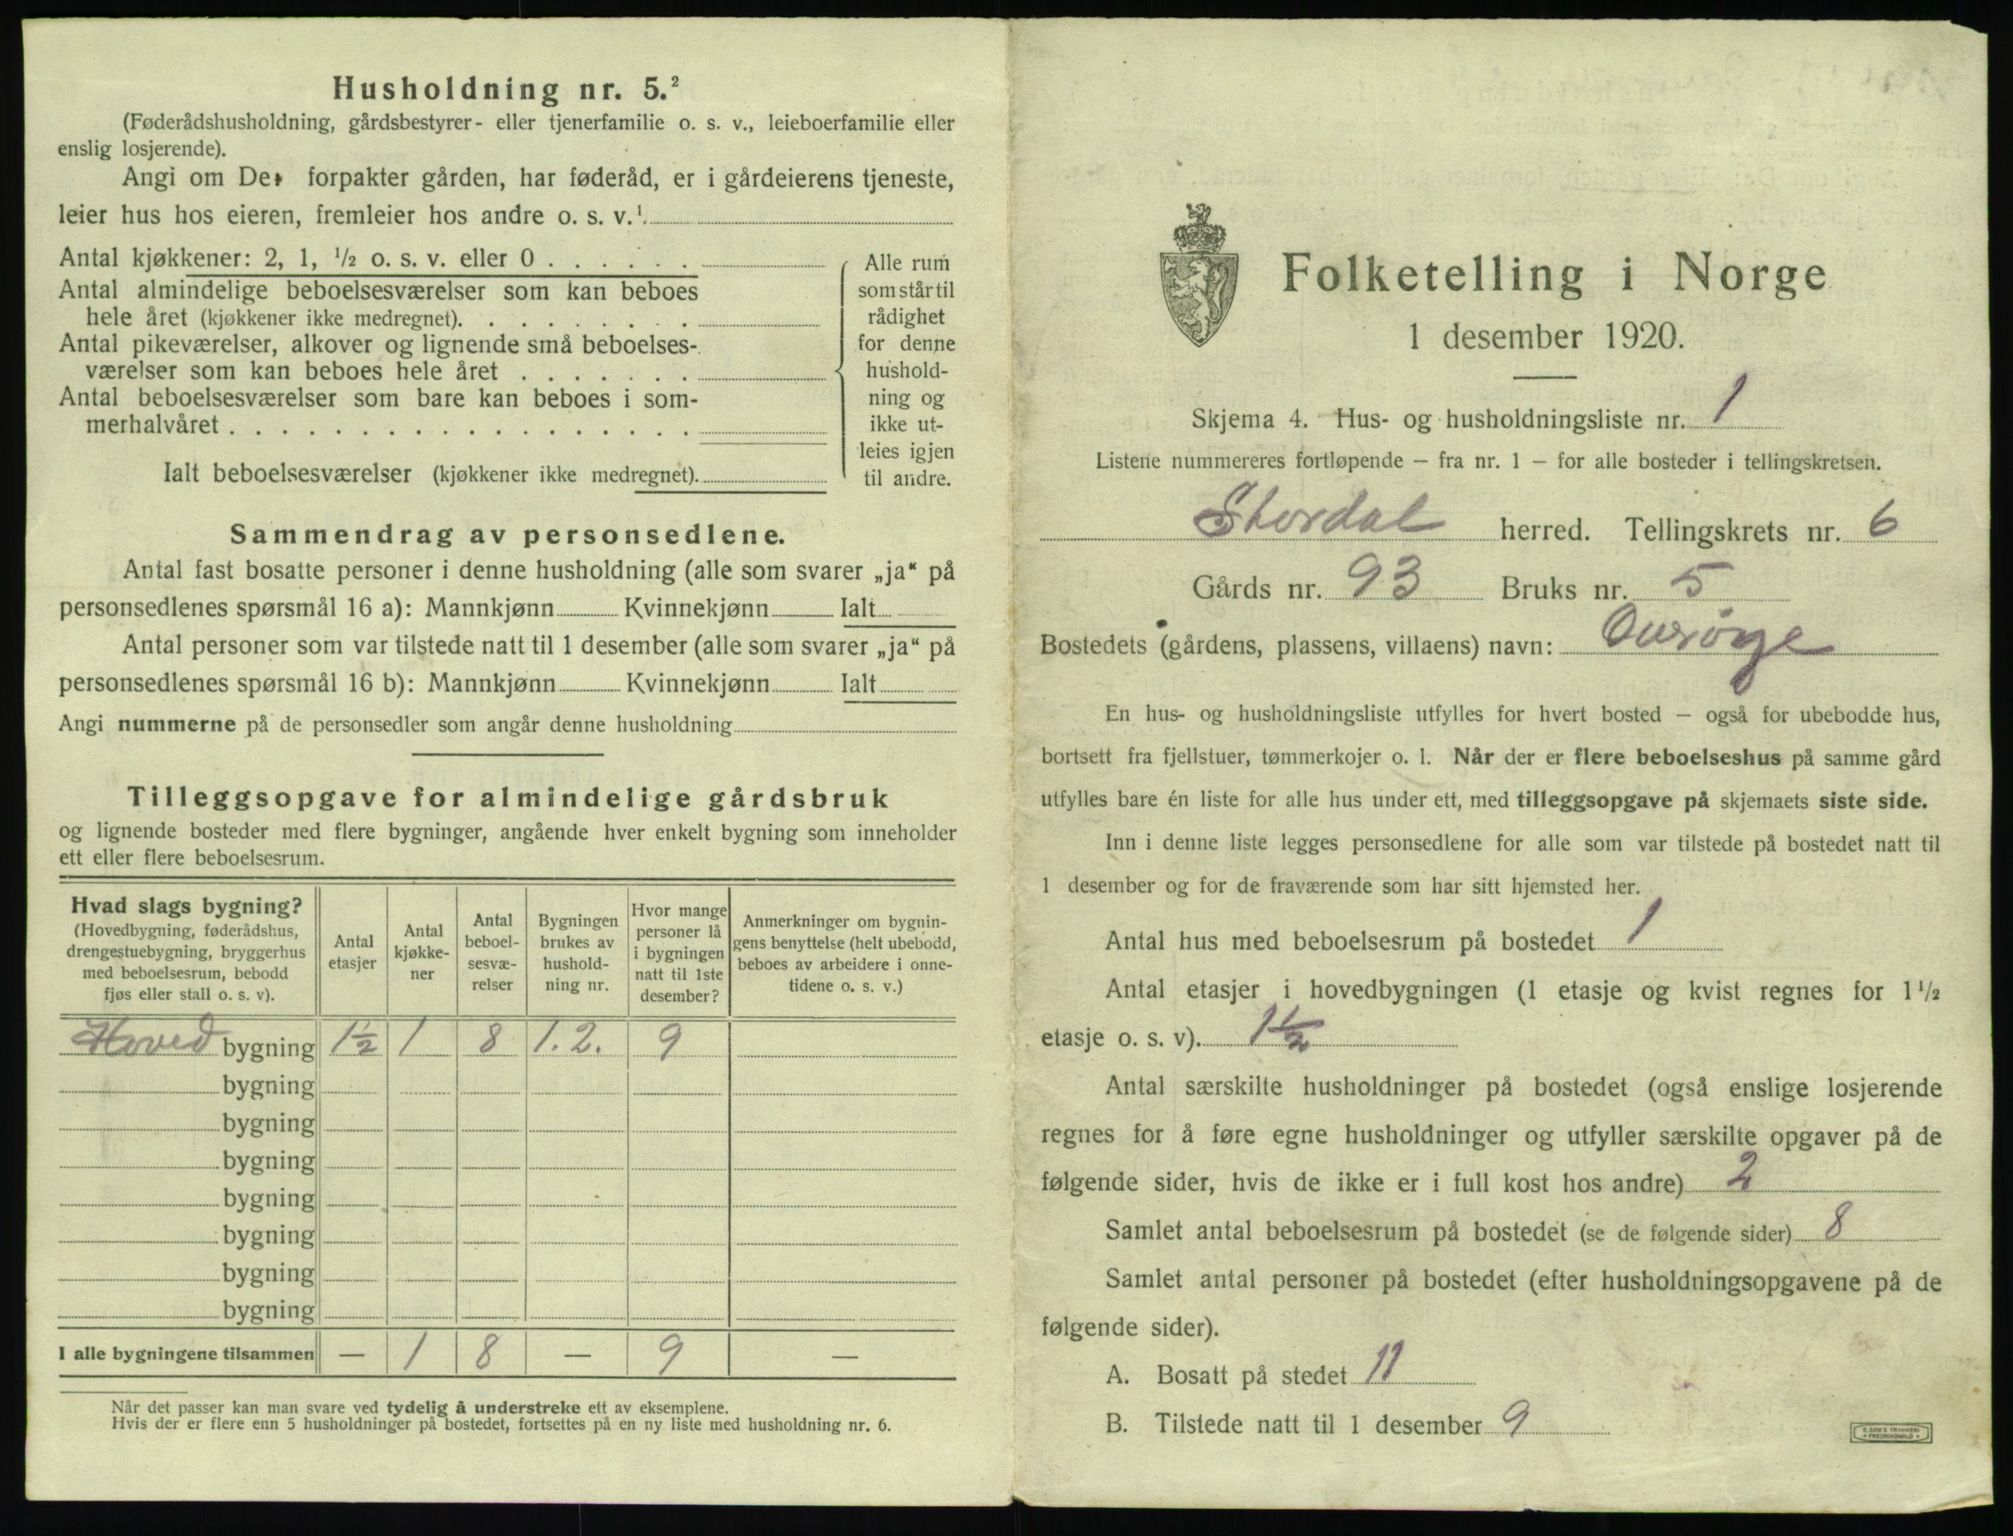 Husholdning nr. 5.²
(Føderådshusholdning, gårdsbestyrer- eller tjenerfamilie o. s. v., leieboerfamilie eller
enslig losjerende).
Angi om De: forpakter gården, har føderåd, er i gårdeierens tjeneste,
leier hus hos eieren, fremleier hos andre o. s. v.¹
Antal kjøkkener: 2, 1, ½ o. s. v. eller 0
Antal almindelige beboelsesværelser som kan beboes
hele året (kjøkkener ikke medregnet).
Antal pikeværelser, alkover og lignende små beboelses-
værelser som kan beboes hele året
Antal beboelsesværelser som bare kan beboes i som-
merhalvåret
Ialt beboelsesværelser (kjøkkener ikke medregnet).
Alle rum
som står til
rådighet
for denne
hushold-
ning og
ikke ut-
leies igjen
til andre.
Sammendrag av personsedlene.
Antal fast bosatte personer i denne husholdning (alle som svarer „ja“ på
personsedlenes spørsmål 16 a): Mannkjønn Kvinnekjønn Ialt
Antal personer som var tilstede natt til 1 desember (alle som svarer „ja“ på
personsedlenes spørsmål 16 b): Mannkjønn Kvinnekjønn Ialt
Angi nummerne på de personsedler som angår denne husholdning
Tilleggsopgave for almindelige gårdsbruk
og lignende bosteder med flere bygninger, angående hver enkelt bygning som inneholder
ett eller flere beboelsesrum.
Hvad slags bygning?
(Hovedbygning, føderådshus,
drengestuebygning, bryggerhus
med beboelsesrum, bebodd
fjøs eller stall o. s. v).
Antal
etasjer
Antal
kjøkke-
ner
Antal
beboel-
sesvæ-
relser
Bygningen
brukes av
hushold-
ning nr.
Hvor mange
personer lå
i bygningen
natt til 1ste
desember?
Anmerkninger om bygnin-
gens benyttelse (helt ubebodd,
beboes av arbeidere i onne-
tidene o. s. v.)
Hoved bygning 1½ 1 8 1.2. 9
bygning
bygning
bygning
bygning
bygning
bygning
bygning
I alle bygningene tilsammen — 1 8 — 9 —
Når det passer kan man svare ved tydelig å understreke ett av eksemplene.
Hvis der er flere enn 5 husholdninger på bostedet, fortsettes på en ny liste med husholdning nr. 6.
Folketelling i Norge
1 desember 1920.
Skjema 4. Hus- og husholdningsliste nr. 1
Listene nummereres fortløpende — fra nr. 1 — for alle bosteder i tellingskretsen.
Stordal herred. Tellingskrets nr. 6
Gårds nr. 93 Bruks nr. 5
Bostedets (gårdens, plassens, villaens) navn: Overøye
En hus- og husholdningsliste utfylles for hvert bosted — også for ubebodde hus,
bortsett fra fjellstuer, tømmerkojer o. l. Når der er flere beboelseshus på samme gård
utfylles bare én liste for alle hus under ett, med tilleggsopgave på skjemaets siste side.
Inn i denne liste legges personsedlene for alle som var tilstede på bostedet natt til
1 desember og for de fraværende som har sitt hjemsted her.
Antal hus med beboelsesrum på bostedet 1
Antal etasjer i hovedbygningen (1 etasje og kvist regnes for 1½
etasje o. s. v). 1½
Antal særskilte husholdninger på bostedet (også enslige losjerende
regnes for å føre egne husholdninger og utfyller særskilte opgaver på de
følgende sider, hvis de ikke er i full kost hos andre) 2
Samlet antal beboelsesrum på bostedet (se de følgende sider) 8
Samlet antal personer på bostedet (efter husholdningsopgavene på de
følgende sider).
A. Bosatt på stedet 11
B. Tilstede natt til 1 desember 9